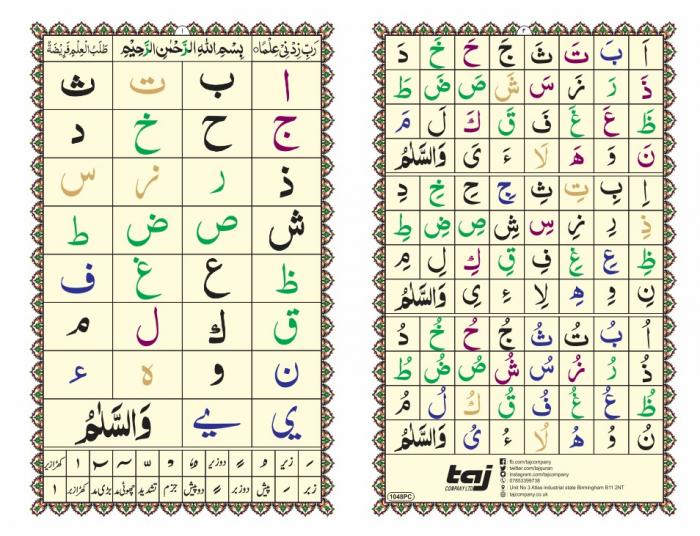 ١
رَبِّ زِدْنِیْ عِلْمًا بِسْمِ اللهِ الرَّحْمٰنِ الرَّحِیْمِ طَلَبُ الْعِلْمِ فَرِیْضَةٌ
ا ب ت ث
ج ح خ د
ذ ر ز س
ش ص ض ط
ظ ع غ ف
ق ك ل م
ن و ه ء
ی ے وَالسَّلَامُ
زیر دوزیر کھڑازیر
زبر پیش دوزبر دوپیش جزم تشدید چھوٹی مد بڑی مد کھڑازبر
٢
اَ بَ تَ ثَ جَ حَ خَ دَ
ذَ رَ زَ سَ شَ صَ ضَ طَ
ظَ عَ غَ فَ قَ كَ لَ مَ
نَ وَ هَ لَا ءَ یَ وَالسَّلَامُ
اِ بِ تِ ثِ جِ حِ خِ دِ
ذِ رِ زِ سِ شِ صِ ضِ طِ
ظِ عِ غِ فِ قِ كِ لِ مِ
نِ وِ هِ لِا ءِ یِ وَالسَّلَامُ
اُ بُ تُ ثُ جُ حُ خُ دُ
ذُ رُ زُ سُ شُ صُ ضُ طُ
ظُ عُ غُ فُ قُ كُ لُ مُ
نُ وُ هُ لُا ءُ یُ وَالسَّلَامُ
taj
COMPANY LTD
fb.com/tajcompany
twitter.com/tajquran
instagram.com/tajcompany
07853399738
Unit No 3 Atlas industrial state Birmingham B11 2NT
tajcompany.co.uk
1048PC